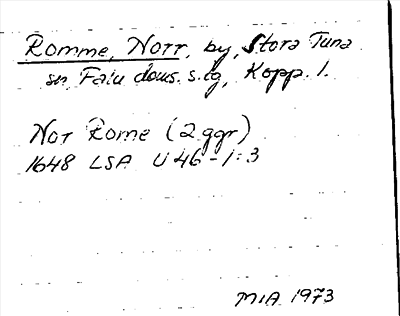 Romme, Norr, by, Stora Tuna
sn, Falu doms. s.lg, Kopp. l.
Nor Rome (2 ggr)
1648 LSA U 46-1:3
MIA 1973